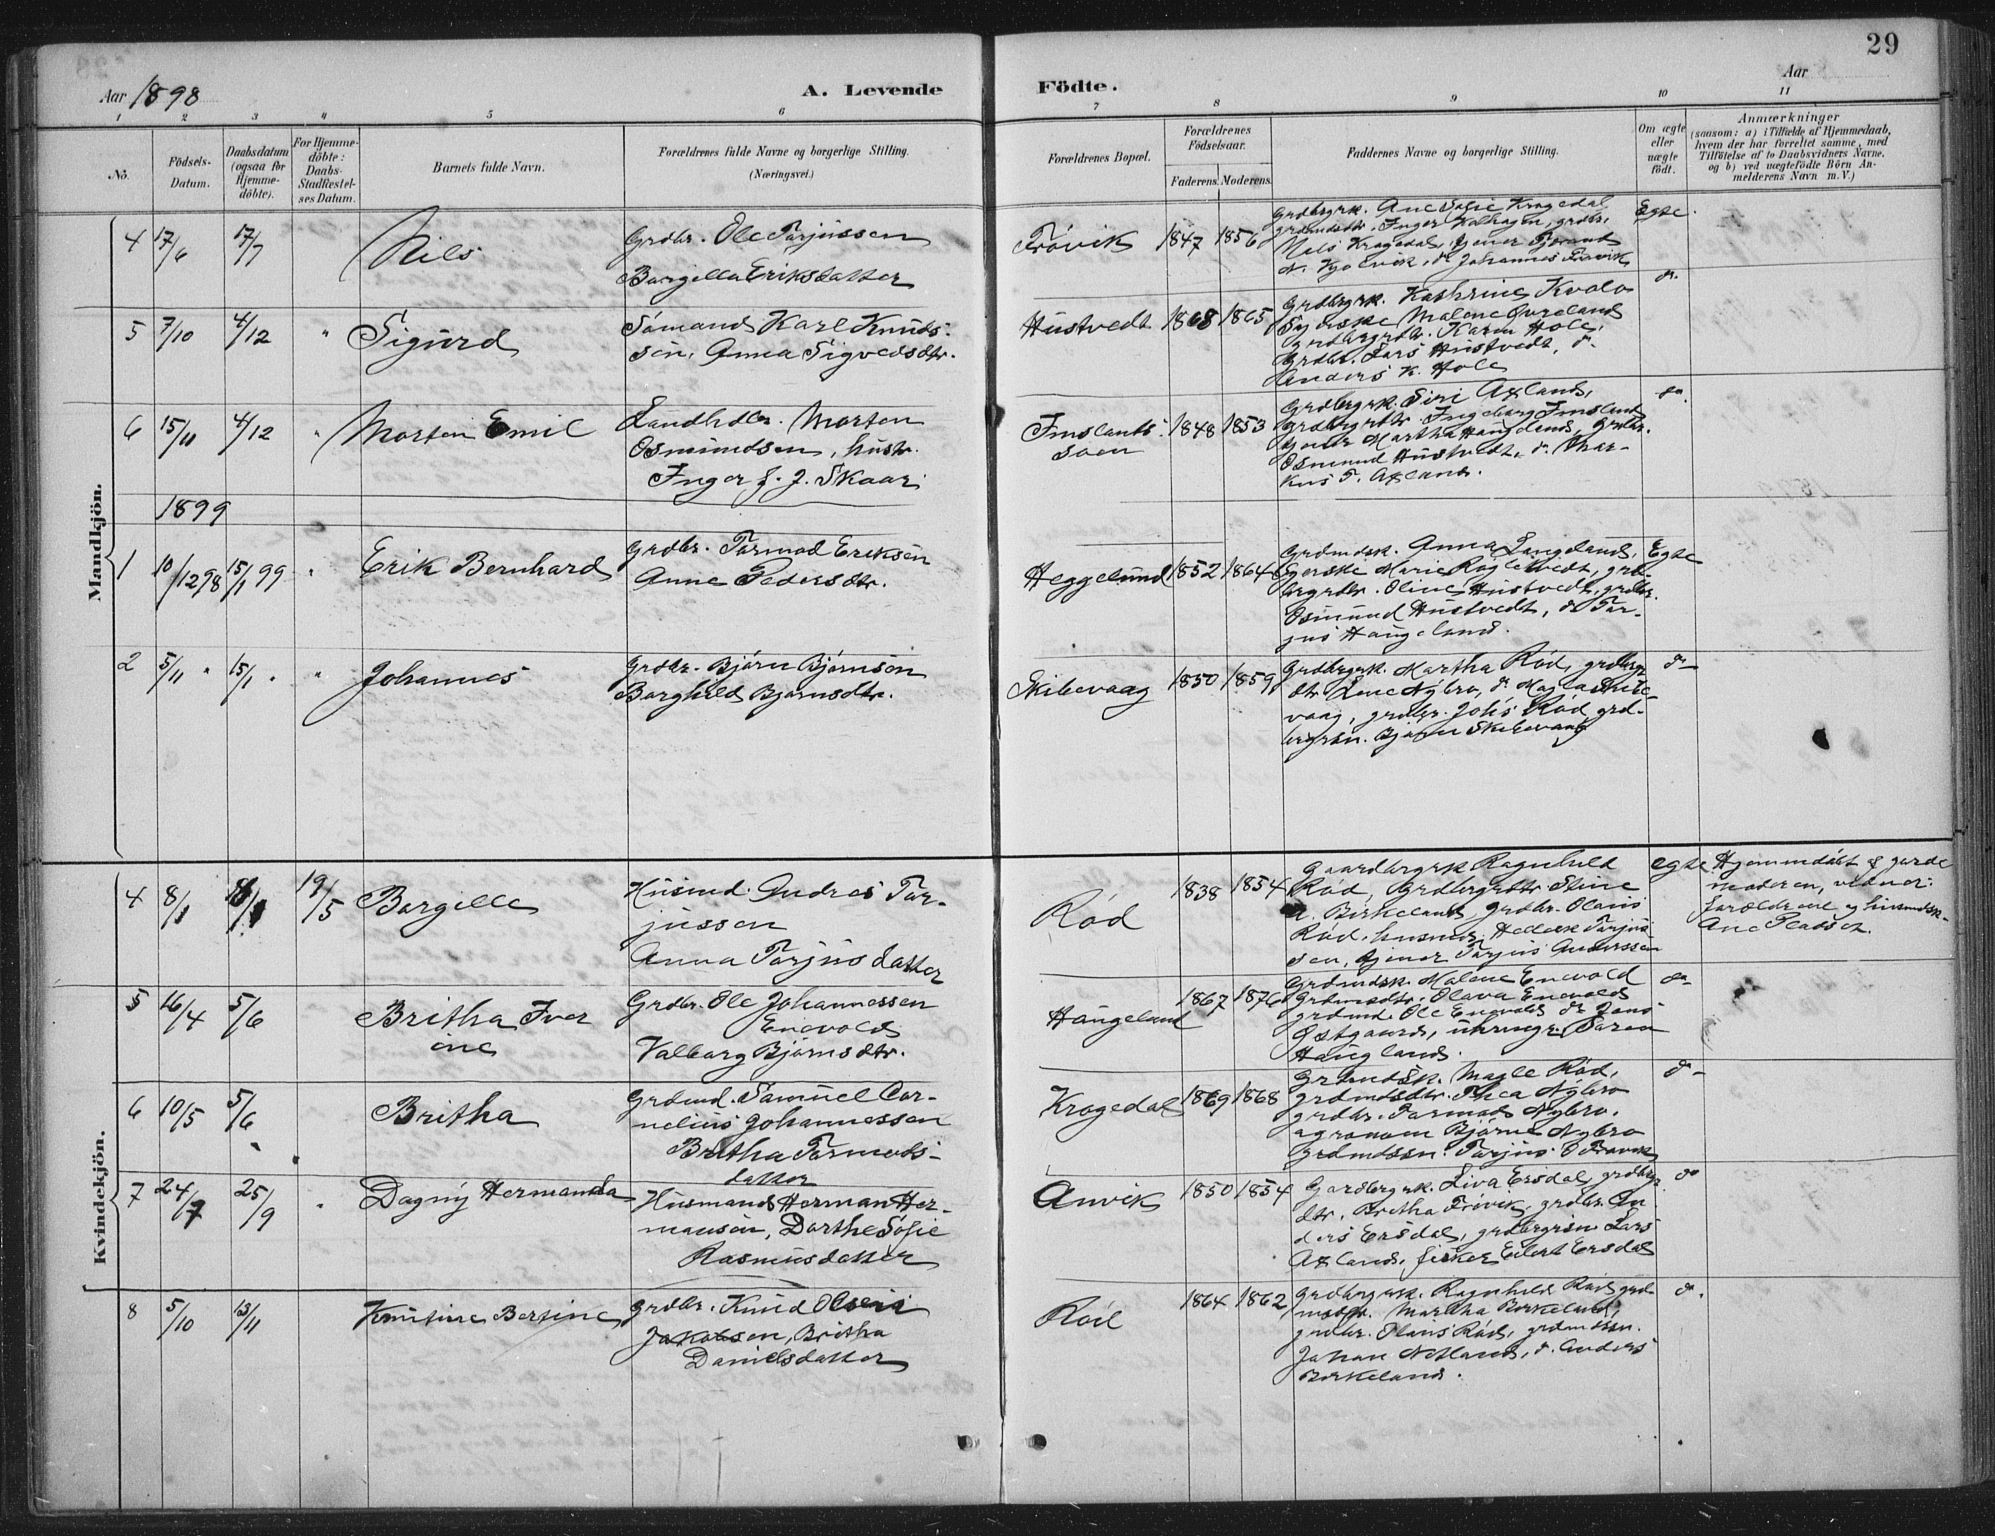 29
Aar 1898
A. Levende
Födte.
Aar
1 2 3 4 5 6 7 8 9 10 11
No.
Födsels-
Datum.
Daabsdatum
(ogsaa for
Hjemme-
döbte).
For Hjemme-
döbte:
Daabs-
Stadfæstel-
ses Datum.
Barnets fulde Navn.
Forældrenes fulde Navne og borgerlige Stilling.
(Næringsvei.)
Forældrenes Bopæl.
Forældrenes
Födselsaar.
Faderens. Moderens.
Faddernes Navne og borgerlige Stilling.
Om ægte
eller
uægte
födt.
Anmærkninger
(saasom: a) i Tilfælde af Hjemmedaab,
hvem der har forrettet samme, med
Tilföielse af to Daabsvidners Navne,
og b) ved uægtefödte Börn An-
melderens Navn m. V.)
Mandkjön.
4 17/6 17/7 Nils
Grdbr. Ole Torjussen
Borgilla Eriksdatter
Frövik 1847 1856
Grdbrgrk. Ane Sofie Krogedal
Nils Krogedal
Johannes Frövik
Egte.
5 7/10 4/12 " Sigurd
Sömand Karl Knuds-
sen, Anna Sigvedsdtr.
Hustvedt 1868 1865
Grdbrgrk. Kathrine Kvalo
Syerske Malene
Karen Hole,
Grdbr. Lars Hustvedt, do.
Anders K. Hole
do.
6 15/11 4/12 " Morten Emil
Landhdlr. Morten
Osmundsen, hustr.
Inger f. J. Skaar
Imslands-
soen 1848 1853
Grdbrgrk. Siri Axland,
Grdbrgrdtr Ingeborg Imsland
Martha Haugeland, Grdbr.
Osmund Hustvedt, do. Mar-
kus T. Axland.
do.
1899
1 10/12 98 15/1 99 " Erik Bernhard
Grdbr. Tormod Eriksen
Anne Pedersdtr.
Heggelund 1852 1864
Grdmdsk. Anna Langeland,
Marie
Oline Hustvedt, grdbr.
Osmund Hustvedt, do Tor-
jus Haugeland.
Egte
2 5/11 " 15/1 " " Johannes
Grdbr. Björn Björnsen
Borghild Björnsdtr.
Skibevaag 1850 1859
Grdbrgrk. Martha Röd, grdbrgr
dtr Lene Nybro, do Magla Skibe-
vaag, grdbr. Johs Röd, grd-
brgrsn. Björn Skibevaag
do
Kvindekjön.
4 8/1 19/5 Borgille
Husmd. Andres Tor-
jussen
Anna Torjusdatter
Röd 1838 1854
Gaardbrgrk Ragnhild
Röd, Grdbrgrdtr Stine
A. Birkeland, Grdbr. Olaus
Röd, husmd. Torjus-
sen, tjener Torjus Andressen
egte
Hjemmedöbt af jorde
moderen, vidner:
forældrene og husmdsk.
Ane Pladset.
5 16/4 5/6 Britha Iver
ene
Grdbr. Ole Johannessen
Enevold
Valborg Björnsdtr.
Haugeland 1867 1876
Grdmdsk. Malene Enevold
Grdmdsdtr. Olava Enevold
grdmd. Ole Enevold do Jens
Östgaard, uhrmgr. Sören
Haugland.
do
6 10/5 5/6 Britha
Grdmd. Samuel Cor-
nelius Johannessen
Britha Tormods-
datter
Krogedal 1869 1868
Grdmdsk. Magle Röd,
grdmdsdtr. Thea Nybro
grdbr. Tormod Nybro,
agronom Björne Nybro
Grdmdssn. Torjus O Frövik
do
7 24/7 25/9 " Dagny Hermanda
Husmand Herman Her-
mansen, Dorthe Sofie
Rasmusdatter
Anvik 1850 1854
Gardbrgrk. Liva Ersdal, grdbrgr
dtr. Britha Frövik, grdbr. An
ders Ersdal, grdbrgrsn. Lars
Axland, fisker Eilert Ersdal
do
8 5/10 13/11 Knutine Bertine
Grdbr. Knud Olsen
Jakobsen, Britha
Danielsdatter
Röd 1864 1862
Grdbrgrk. Ragnhild Röd, grd-
Martha Birkeland,
grdbr. Olaus Röd, grdmdssn.
Johan Netland, do. Anders
Birkeland.
do.